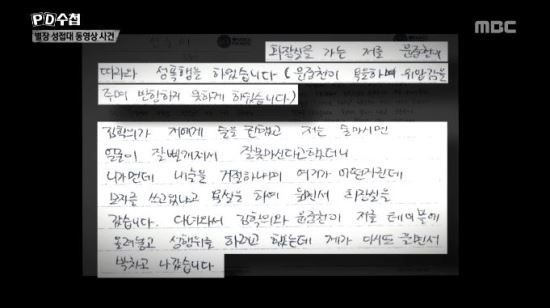 PD수첩
별장 성접대 동영상 사건
MBC
화장실을 가는 저를 윤중천이
따라와 성폭행을 하였습니다 (윤중천이 욕을하며 위압감을
주며 반항하지 못하게 하였습니다)
김학의가 저에게 술을 권했고 저는 술마시면
얼굴이 잘빨개져서 잘못마신다고했더니
니가뭔데 내술을 거절하냐며 여기가 어떤자린데
모자를 쓰고있냐고 욕설을 하여 울면서 화장실을
갔습니다. 다녀와서 김학의와 윤중천이 저를 테이블에
올려놓고 성행위를 하려고 했는데 제가 다시또 울면서
박차고 나갔습니다